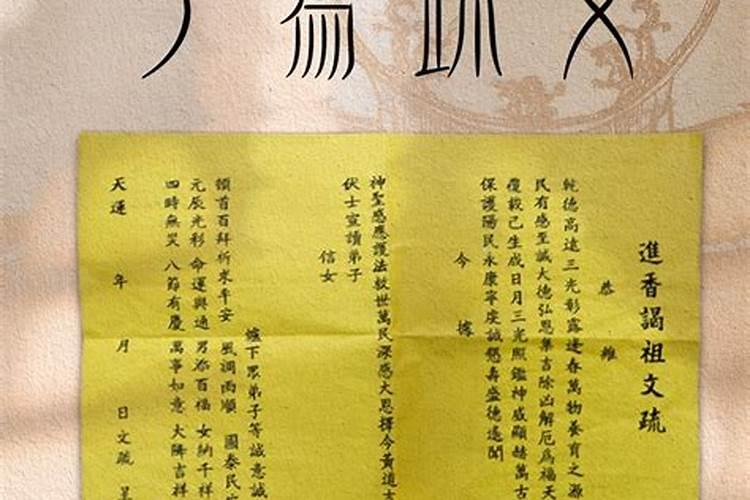 為疏文
進香謁祖文疏
恭維
乾德高遠三光彰露逢春萬物養育之源
民有感至誠大德弘恩集吉除凶解厄為福天
覆載己生成日月三光照鑑神威顯赫萬古
保護陽民永康寧虔誠懇壽盛德遙聞
今據
神聖感應護法救世萬民深感大恩擇今黃道
伏士宣讀弟子
信女
爐下眾弟子等誠意誠
頓首百拜祈求平安 風調雨順 國泰民
元辰光彩 命運興通 男添百福 女納千祥
四時無災 八節有慶 萬事如意 大降吉祥
天運 年 月 日文疏 呈